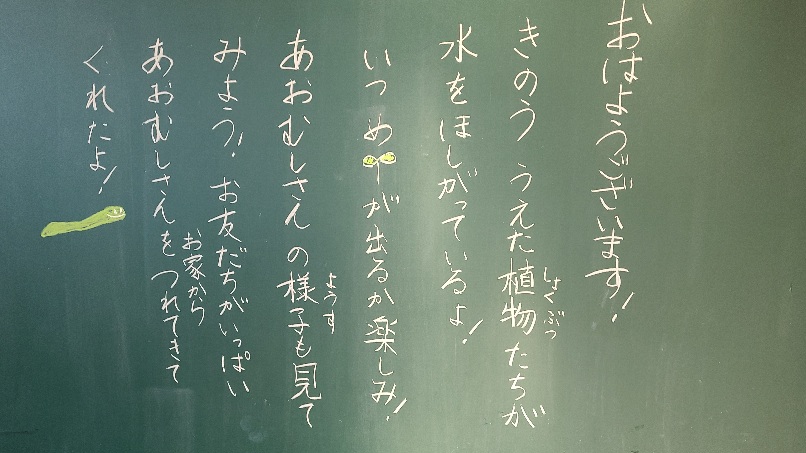 おはようございます!
きのう うえた植物たちが
しょくぶつ
水をほしがっているよ!
いつ めが出るか楽しみ!
あおむしさんの様子も見て
ようす
みよう! お友だちがいっぱい
お家から
あおむしさんをつれてきて
くれたよ!